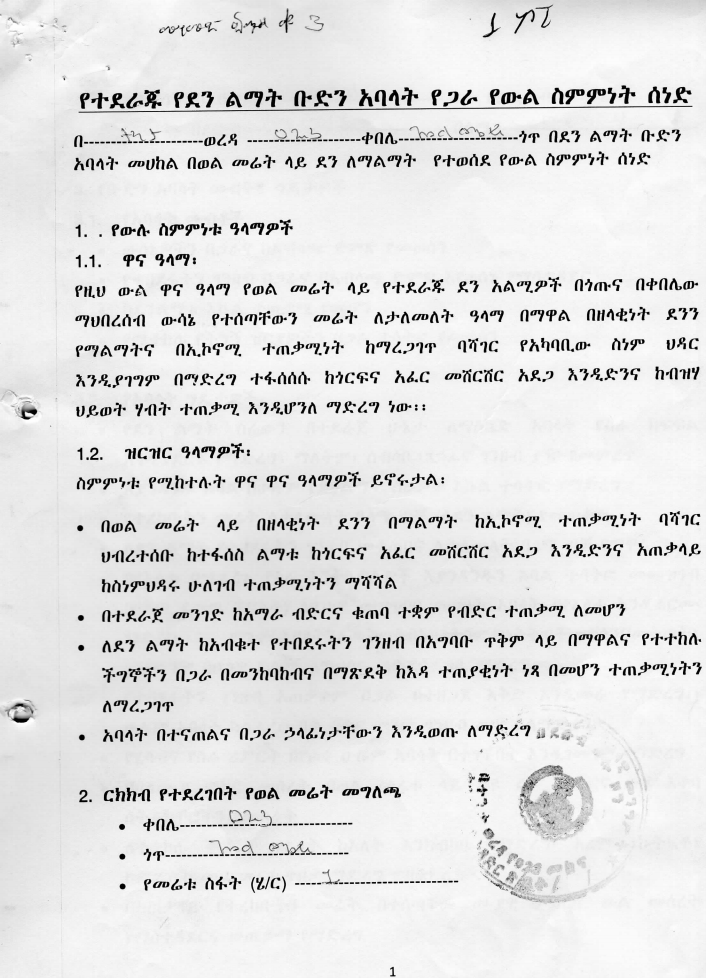 3
የተደራጁ የደን ልማት ቡድን አባላት የጋራ የውል ስምምነት ሰነድ
በ---------------------ወረዳ --------------------ቀበሌ---------------------ጎጥ በደን ልማት ቡድን
አባላት መሀከል በወል መሬት ላይ ደን ለማልማት የተወሰደ የውል ስምምነት ሰነድ
1. . የውሉ ስምምነቱ ዓላማዎች
1.1. ዋና ዓላማ፡
የዚህ ውል ዋና ዓላማ የወል መሬት ላይ የተደራጁ ደን አልሚዎች በጎጡና በቀበሌው
ማህበረሰብ ውሳኔ የተሰጣቸውን መሬት ለታለመለት ዓላማ በማዋል በዘላቂነት ደንን
የማልማትና በኢኮኖሚ ተጠቃሚነት ከማረጋገጥ ባሻገር የአካባቢው ስነም ህዳር
እንዲያገግም በማድረግ ተፋሰሰሱ ከጎርፍና አፈር መሸርሸር አደጋ እንዲድንና ከብዝሃ
ህይወት ሃብት ተጠቃሚ እንዲሆንለ ማድረግ ነው፡፡
1.2. ዝርዝር ዓላማዎች፡
ስምምነቱ የሚከተሉት ዋና ዋና ዓላማዎች ይኖሩታል፡
• በወል መሬት ላይ በዘላቂነት ደንን በማልማት ከኢኮኖሚ ተጠቃሚነት ባሻገር
ህብረተሰቡ ከተፋሰስ ልማቱ ከጎርፍና አፈር መሸርሸር አደጋ እንዲድንና አጠቃላይ
ከስነምህዳሩ ሁለገብ ተጠቃሚነትን ማሻሻል
• በተደራጀ መንገድ ከአማራ ብድርና ቁጠባ ተቋም የብድር ተጠቃሚ ለመሆን
• ለደን ልማት ከአብቁተ የተበደሩትን ገንዘብ በአግባቡ ጥቅም ላይ በማዋልና የተተከሉ
ችግኞችን በጋራ በመንከባከብና በማጽደቅ ከእዳ ተጠያቂነት ነጻ በመሆን ተጠቃሚነትን
ለማረጋገጥ
• አባላት በተናጠልና በጋራ ኃላፊነታቸውን እንዲወጡ ለማድረግ
2. ርክክብ የተደረገበት የወል መሬት መግለጫ
• ቀበሌ------------------------------
• ጎጥ--------------------------------
• የመሬቱ ስፋት (ሄ/ር) ----------------------------
1